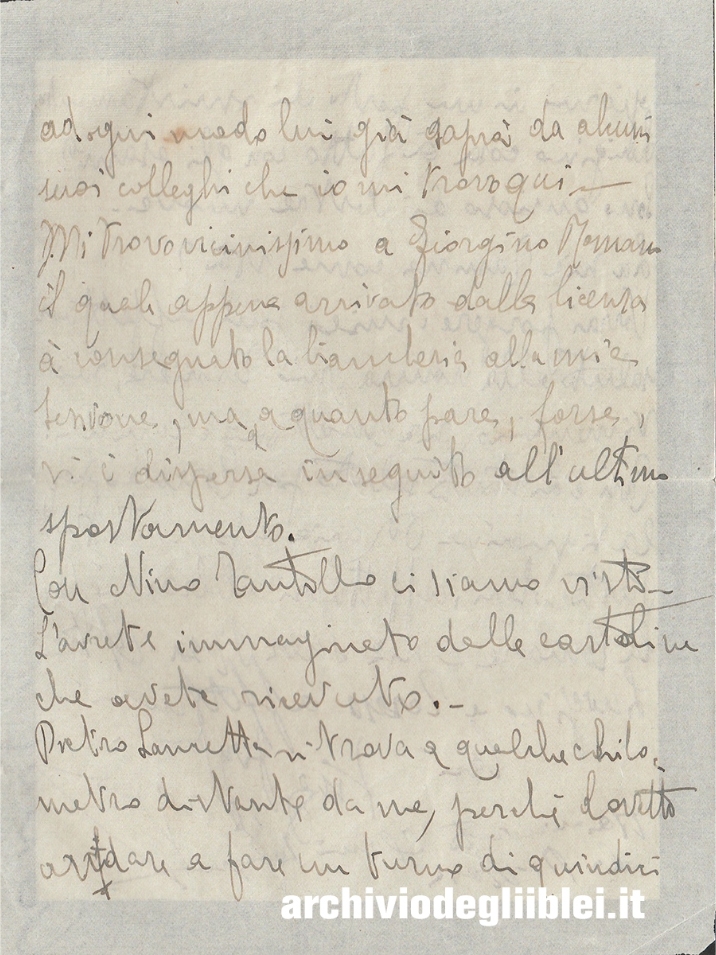 ad ogni modo lui già saprà da alcuni
suoi colleghi che io mi trovo qui —
Mi trovo vicinissimo a Giorgino
il quale appena arrivato dalla licenza
à consegnato la biancheria alla mia
, ma a quanto pare, forse,
si è dispersa in seguito all'ultimo
spostamento.
Con Nino Tantillo ci siamo visti —
L'avrete immaginato dalle cartoline
che avete ricevuto. –
Pietro Lauretta si trova a qualche chilo-
metro distante da me, perché dovette
andare a fare un turno di quindici
archiviodegliiblei.it